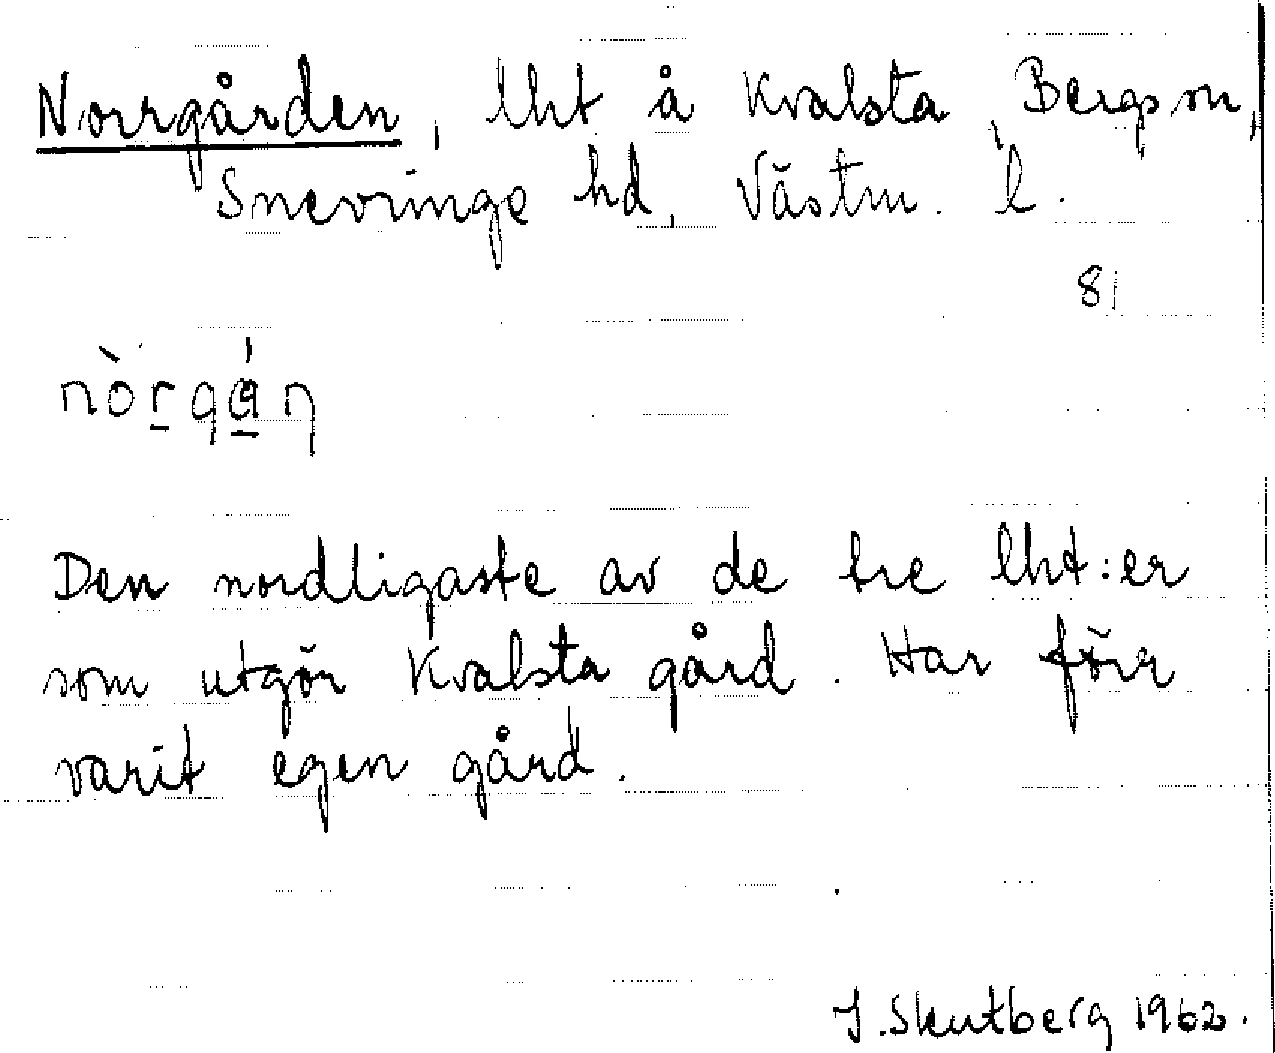 Norrgården, lht å Kvalsta, Bergs sn,
Snevringe hd, Västm. l.
81
nòrgánη
Den nordligaste av de tre lht:er
som utgör Kvalsta gård. Har förr
varit egen gård.
J. Skutberg 1962.